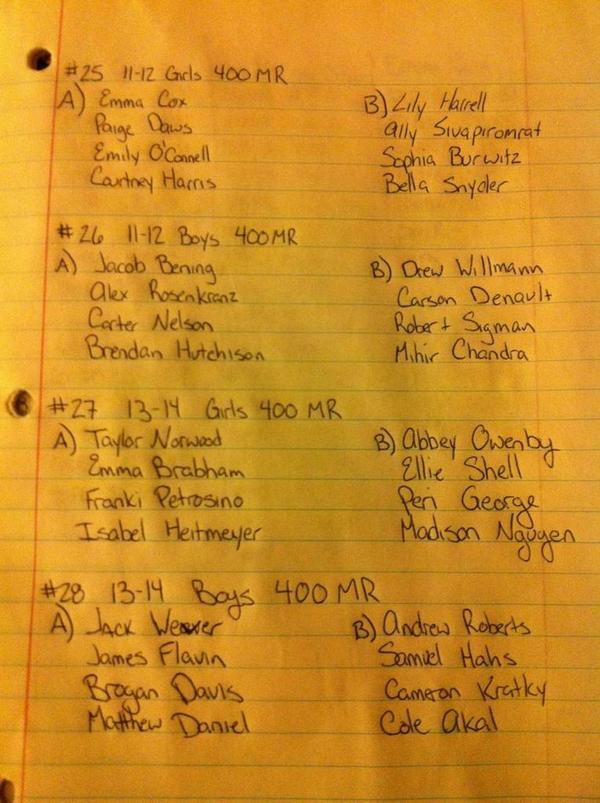 #25 11-12 Girls 400 MR
A) Emma Cox
Paige Daws
Emily O'Connell
Courtney Harris
B) Lily Harrell
Ally Sivapiromrat
Sophia Burwitz
Bella Snyder
#26 11-12 Boys 400 MR
A) Jacob Bening
Alex Rosenkranz
Carter Nelson
Brendan Hutchison
B) Drew Willmann
Carson Denault
Robert Sigman
Mihir Chandra
#27 13-14 Girls 400 MR
A) Taylor Norwood
Emma Brabham
Franki Petrosino
Isabel Heitmeyer
B) Abbey Owenby
Ellie Shell
Peri George
Madison Nguyen
#28 13-14 Boys 400 MR
A) Jack Weaver
James Flavin
Brogan Davis
Matthew Daniel
B) Andrew Roberts
Samuel Hahs
Cameron Kratky
Cole Akal